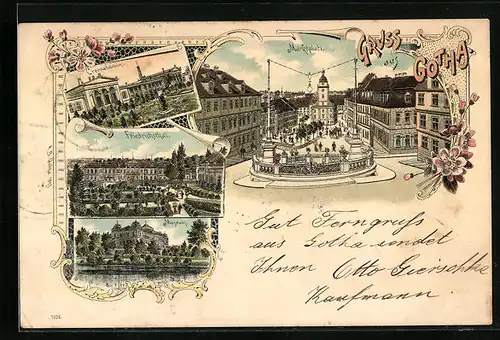 Marktplatz.
GRUSS
aus
GOTHA.
Friedrichsthal.
Museum
Gut Ferngruss
aus Gotha sendet
Ihnen Otto Gierschke
Kaufmann.